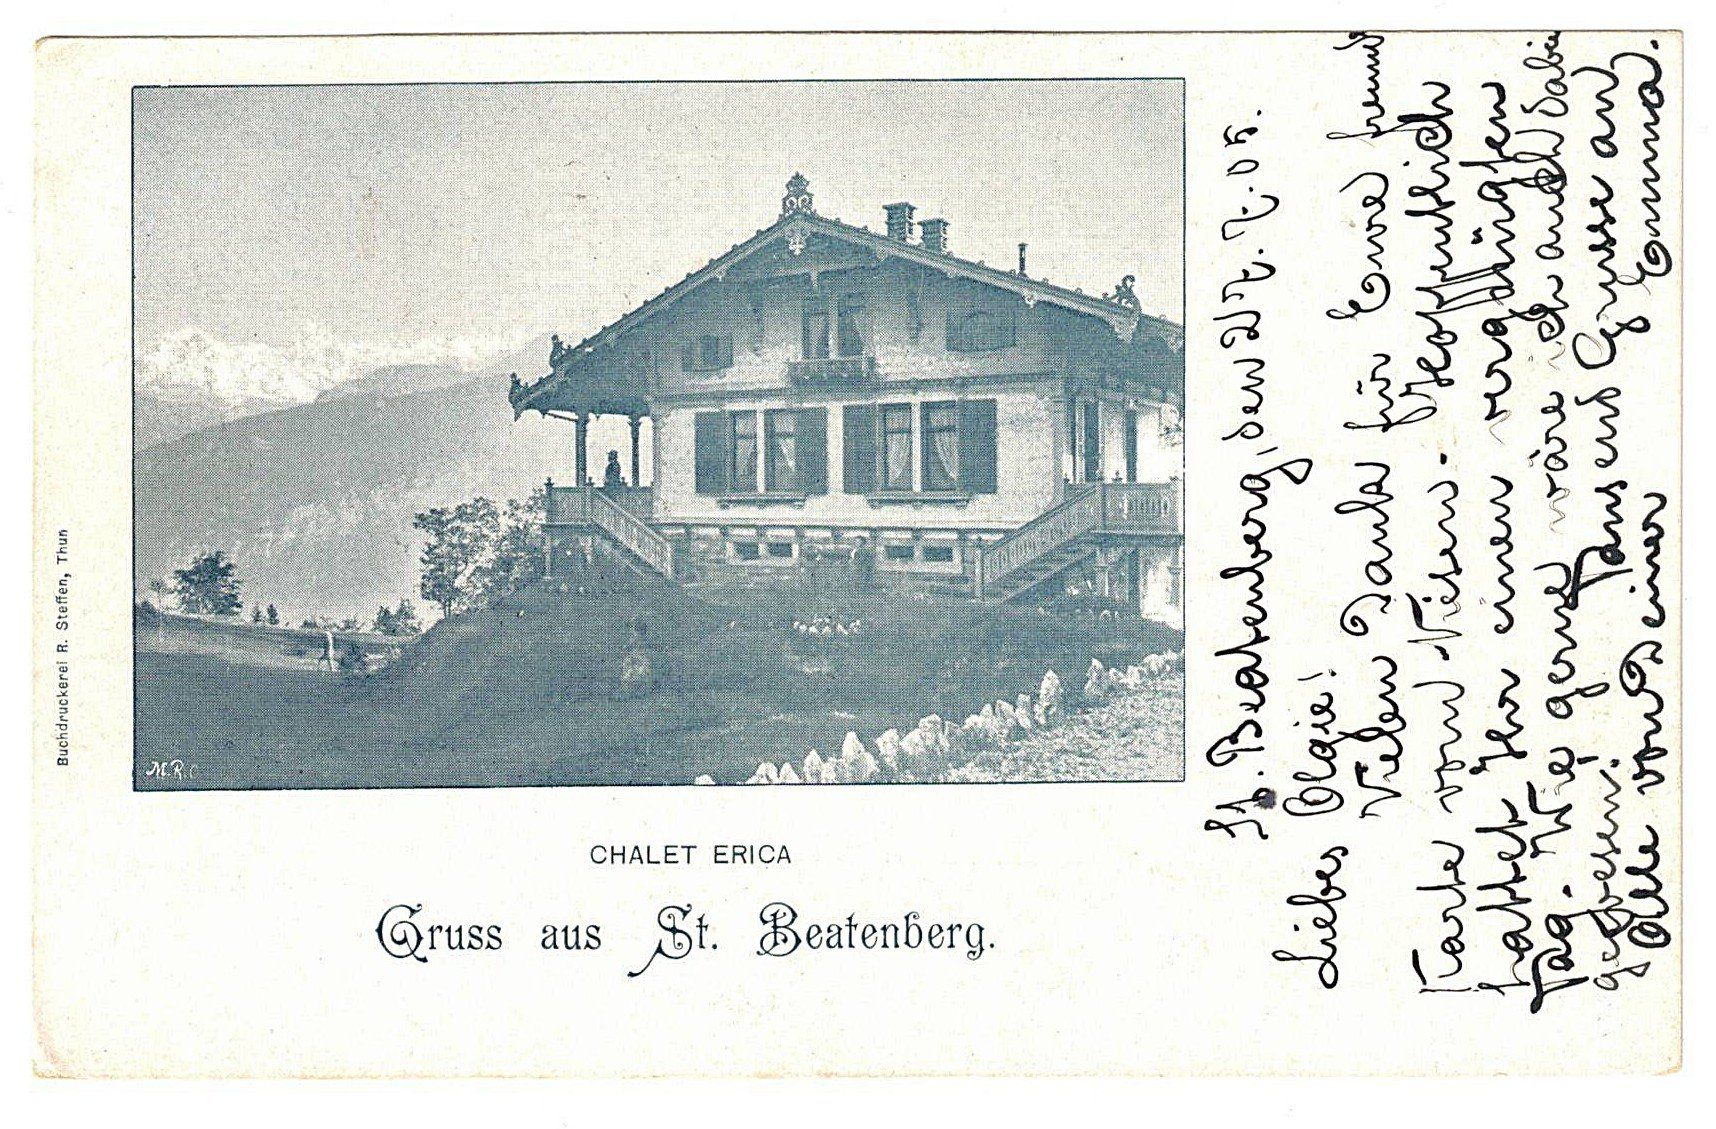 Buchdruckerei R. Steffen, Thun
M.R.
CHALET ERICA
Gruss aus St. Beatenberg.
St. Beatenberg, den 27. 7. 05.
Liebes
Vielen Dank für Eure freundl
Karte vom Niesen. Hoffentlich
hattet Ihr einen vergnügten
Tag. Wie gerne wäre ich auch dabei
gewesen! Tausend Grüsse an
Alle von Deiner Emma.